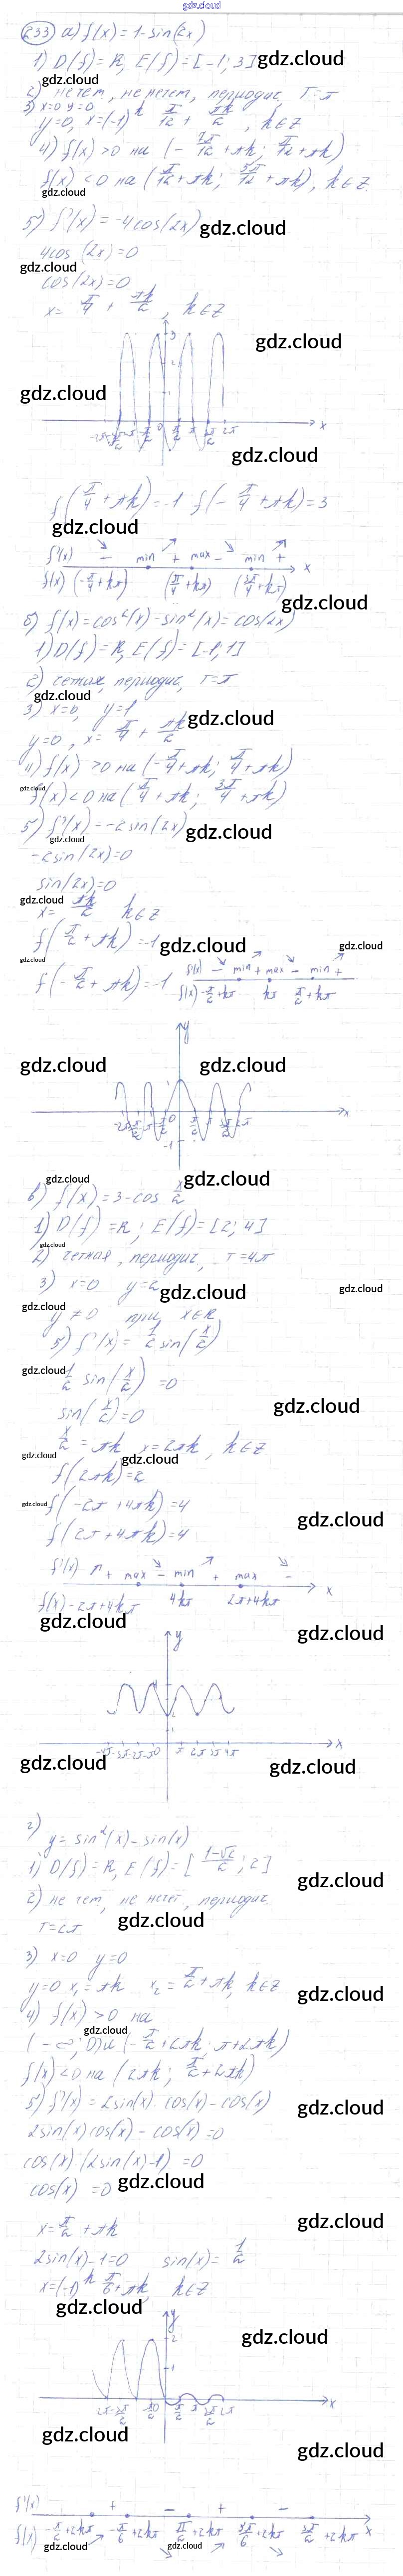 gdz.cloud
233 а) f(x) = 1-sin(2x)
1) D(f) = R, E(f) = [-1; 3] gdz.cloud
gdz.cloud
2) не чет, не нечет, периодич, T=π
3) x=0 y=0
y=0, x=(-1)^k π/12 + πk/2, k∈Z
4) f(x) >0 на (-7π/12 + πk; π/12 + πk)
f(x) <0 на (π/12 + πk; 5π/12 + πk), k∈Z.
gdz.cloud
5) f'(x) = -4cos(2x) gdz.cloud
4cos (2x) =0
gdz.cloud
cos(2x)=0
x= π/4 + πk/2, k∈Z
gdz.cloud
gdz.cloud
gdz.cloud
f(π/4 + πk)=-1 f(-π/4 + πk)=3
gdz.cloud
f'(x) - min + max - min +
f(x) (-π/4 + kπ) (π/4 + kπ) (3π/4 + kπ) x
gdz.cloud
б) f(x) = cos²(x) - sin²(x) = cos(2x)
1) D(f) = R, E(f) = [-1, 1]
2) четная, периодич, T=π
gdz.cloud
3) x=0, y=1 gdz.cloud
y=0, x= π/4 + πk/2
4) f(x) >0 на (-π/4 + πk; π/4 + πk)
gdz.cloud
f(x) <0 на (π/4 + πk; 3π/4 + πk)
5) f'(x) = -2sin(2x) gdz.cloud
gdz.cloud
-2sin(2x)=0
sin(2x)=0
gdz.cloud
x= πk/2 k∈Z
f(π/2 + πk) =-1 gdz.cloud gdz.cloud
gdz.cloud
f(-π/2 + πk) =-1 f'(x) - min + max - min +
f(x) -π/2 + kπ kπ π/2 + kπ
y
gdz.cloud gdz.cloud
0 x
-1
gdz.cloud gdz.cloud
в) f(x) = 3-cos x/2
1) D(f) = R; E(f) = [2; 4]
gdz.cloud
2) четная, периодич, T=4π
3) x=0 y=2 gdz.cloud gdz.cloud
gdz.cloud
y ≠ 0 при x∈R
5) f'(x) = 1/2 sin(x/2)
gdz.cloud
1/2 sin(x/2) =0
gdz.cloud
sin(x/2) =0
x/2 = πk x=2πk, k∈Z
gdz.cloud gdz.cloud
f(2πk)=2
gdz.cloud
f(-2π + 4πk) =4
gdz.cloud
f(2π + 4πk) =4
f'(x) + max - min + max -
f(x) -2π+4kπ 4kπ 2π+4kπ x
gdz.cloud
gdz.cloud
y
x
gdz.cloud gdz.cloud
г)
y= sin²(x) - sin(x)
1) D(f) = R, E(f) = [ (1-√2)/2; 2]
gdz.cloud
2) не чет, не нечет, периодич.
T=2π gdz.cloud
3) x=0 y=0
y=0 x₁=πk x₂ = π/2 + πk, k∈Z gdz.cloud
4) f(x) >0 на
gdz.cloud
(-∞; 0) и (-π/2 + 2πk; π+2πk)
f(x) <0 на (2πk; π/2 + 2πk)
5) f'(x) = 2sin(x) cos(x) - cos(x) gdz.cloud
2sin(x)cos(x) - cos(x) =0
cos(x)·(2sin(x)-1) =0
cos(x) =0 gdz.cloud
gdz.cloud
x= π/2 + πk
2sin(x)-1=0 sin(x) = 1/2
x=(-1)^k π/6 + πk, k∈Z
gdz.cloud
y
2
gdz.cloud
1
x
gdz.cloud
gdz.cloud
f'(x) + - + -
f(x) -π/2 + 2kπ -π/6 + 2kπ π/2 + 2kπ 5π/6 + 2kπ 3π/2 + 2kπ x
gdz.cloud gdz.cloud